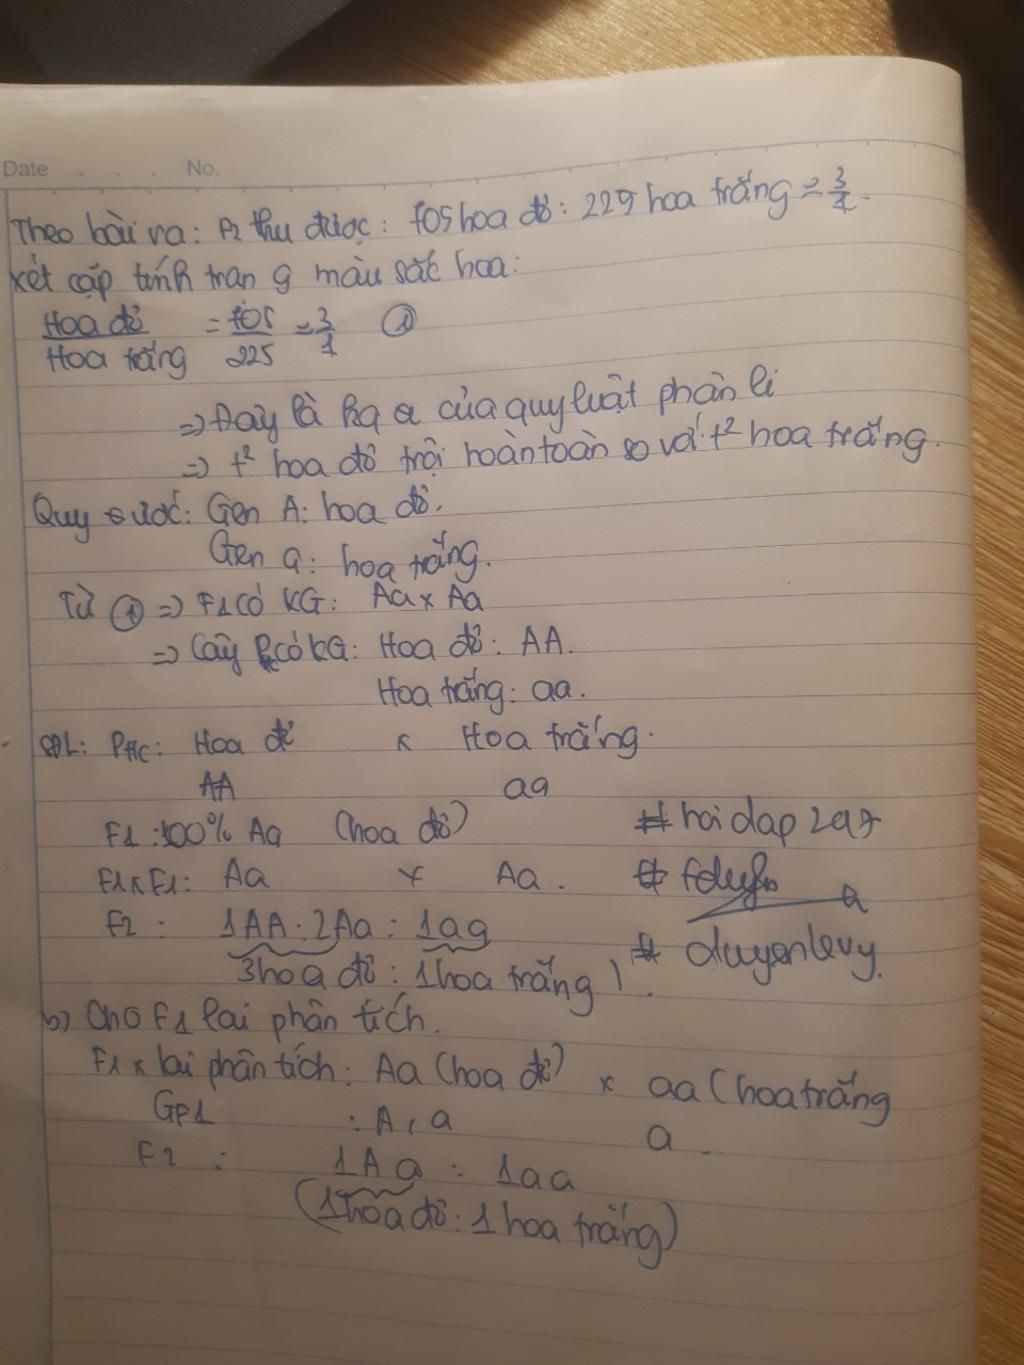 Date . . . . No.
Theo bài ra: F2 thu được: 705 hoa đỏ: 225 hoa trắng ≈ 3/1.
Xét cặp tính trạng màu sắc hoa:
Hoa đỏ / Hoa trắng = 705 / 225 ≈ 3/1 ①
=> Đây là kq of của quy luật phân li
=> t² hoa đỏ trội hoàn toàn so với t² hoa trắng.
Quy ước: Gen A: hoa đỏ.
Gen a: hoa trắng.
Từ ① => F1 có KG: Aa x Aa
=> Cây P có KG: Hoa đỏ: AA.
Hoa trắng: aa.
SĐL: Ptc: Hoa đỏ x Hoa trắng.
AA aa
F1: 100% Aa (hoa đỏ)
# hoidap247
F1xF1: Aa x Aa.
F2: 1AA : 2Aa : 1aa
3hoa đỏ : 1hoa trắng).
# duyenlevy.
b) Cho F1 lai phân tích.
F1 x lai phân tích: Aa (hoa đỏ) x aa (hoa trắng
GF1 : A, a a.
F2 : 1Aa : 1aa
(1hoa đỏ : 1 hoa trắng)